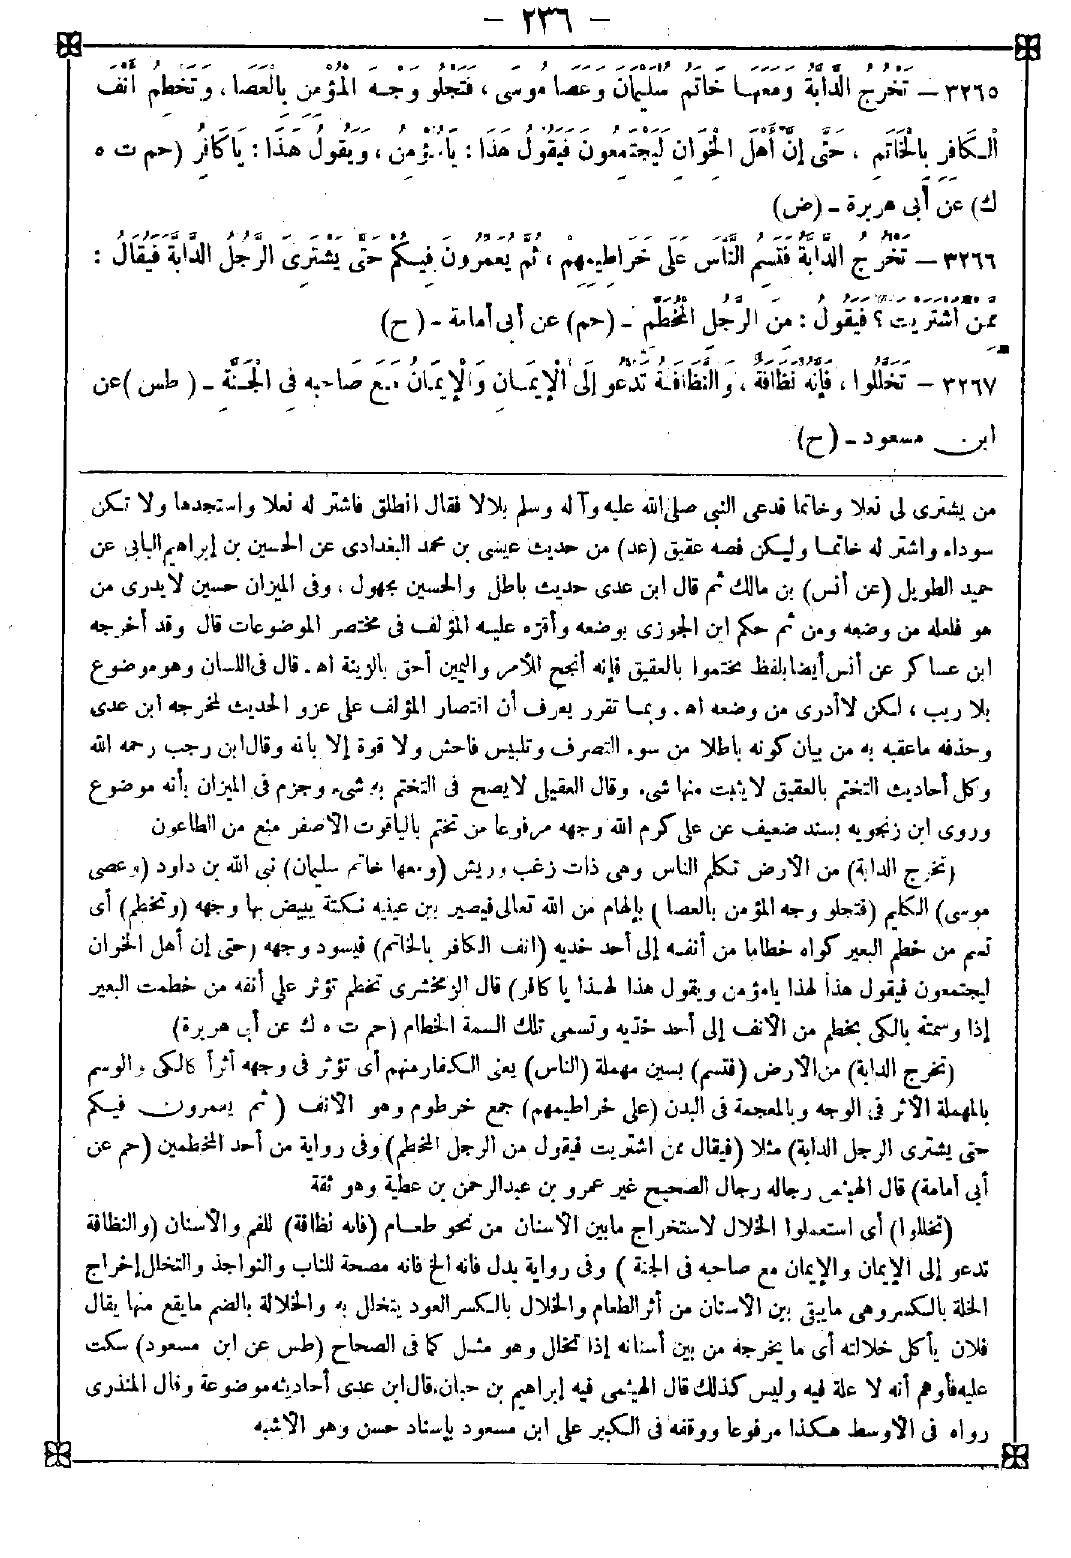 – ٢٣٦ –
٣٢٦٥ – تَخْرُجُ الدَّابَّةُ وَمَعَهَا خَاتَمُ سُلَيْمَانَ وَعَصَا مُوسَى ، فَتَجْلُو وَجْهَ الْمُؤْمِنِ بِالْعَصَا ، وَتَخْطِمُ أَنْفَ
الْكَافِرِ بِالْخَاتَمِ ، حَتَّى إِنَّ أَهْلَ الْخِوَانِ لَيَجْتَمِعُونَ فَيَقُولُ هَذَا : يَامُؤْمِنُ ، وَيَقُولُ هَذَا : يَا كَافِرُ (حم ت ه
ك) عن أبى هريرة – (ض)
٣٢٦٦ – تَخْرُجُ الدَّابَّةُ فَتَسِمُ النَّاسَ عَلَى خَرَاطِيمِهِمْ ، ثُمَّ يَعْمُرُونَ فِيكُمْ حَتَّى يَشْتَرِىَ الرَّجُلُ الدَّابَّةَ فَيُقَالُ :
مِمَّنِ اشْتَرَيْتَ ؟ فَيَقُولُ : مِنَ الرَّجُلِ الْمُخَطَّمِ – (حم) عن أبى أمامة – (ح)
٣٢٦٧ – تَخَلَّلُوا ، فَإِنَّهُ نَظَافَةٌ ، وَالنَّظَافَةُ تَدْعُو إِلَى الْإِيمَانِ وَالْإِيمَانُ مَعَ صَاحِبِهِ فِى الْجَنَّةِ – ( طس ) عن
ابن مسعود – (ح)
من يشترى لى نعلا وخاتما فدعى النبى صلى الله عليه وآله وسلم بلالا فقال انطلق فاشتر له نعلا واستجدها ولا تكن
سوداء واشتر له خاتما وليكن فصه عقيق (عد) من حديث عيسى بن محمد البغدادى عن الحسين بن إبراهيم البابى عن
حميد الطويل (عن أنس) بن مالك ثم قال ابن عدى حديث باطل والحسين مجهول ، وفى الميزان حسين لايدرى من
هو فلعله من وضعه ومن ثم حكم ابن الجوزى بوضعه وأقره عليه المؤلف فى مختصر الموضوعات قال وقد أخرجه
ابن عساكر عن أنس أيضا بلفظ تختموا بالعقيق فإنه أنجح للأمر واليمين أحق بالزينة اهـ . قال فى اللسان وهو موضوع
بلا ريب ، لكن لا أدرى من وضعه اهـ . وبما تقرر يعرف أن اقتصار المؤلف على عزو الحديث لمخرجه ابن عدى
وحذفه ماعقبه به من بيان كونه باطلا من سوء التصرف وتلبيس فاحش ولا قوة إلا بالله وقال ابن رجب رحمه الله
وكل أحاديث التختم بالعقيق لا يثبت منها شىء وقال العقيلى لا يصح فى التختم به شىء وجزم فى الميزان بأنه موضوع
وروى ابن زنجويه بسند ضعيف عن على كرم الله وجهه مرفوعا من تختم بالياقوت الأصفر منع من الطاعون
(تخرج الدابة) من الأرض تكلم الناس وهى ذات زغب وريش (ومعها خاتم سليمان) نبى الله بن داود (وعصى
موسى) الكليم (فتجلو وجه المؤمن بالعصا ) بإلهام من الله تعالى فيصير بين عينيه نكتة يبيض بها وجهه (وتخطم) أى
تسم من خطم البعير كواه خطاما من أنفه إلى أحد خديه (أنف الكافر بالخاتم) فيسود وجهه (حتى إن أهل الخوان
ليجتمعون فيقول هذا لهذا يامؤمن ويقول هذا لهذا يا كافر) قال الزمخشرى تخطم تؤثر على أنفه من خطمت البعير
إذا وسمته بالكى بخطم من الأنف إلى أحد خديه وتسمى تلك السمة الخطام (حم ت ه ك عن أبى هريرة)
(تخرج الدابة) من الأرض (فتسم) بسين مهملة (الناس) يعنى الكفار منهم أى تؤثر فى وجهه أثرا كالكى والوسم
بالمهملة الأثر فى الوجه وبالمعجمة فى البدن (على خراطيمهم) جمع خرطوم وهو الأنف ( ثم يعمرون فيكم
حتى يشترى الرجل الدابة) مثلا (فيقال ممن اشتريت فيقول من الرجل المخطم) وفى رواية من أحد المخطمين (حم عن
أبى أمامة) قال الهيثمى رجاله رجال الصحيح غير عمرو بن عبدالرحمن بن عطية وهو ثقة
(تخللوا) أى استعملوا الخلال لاستخراج مابين الأسنان من نحو طعام (فإنه نظافة) للفم والأسنان (والنظافة
تدعو إلى الإيمان والإيمان مع صاحبه فى الجنة ) وفى رواية بدل فانه الخ فانه مصحة للناب والنواجذ والتخلل إخراج
الخلة بالكسر وهى مايبقى بين الأسنان من أثر الطعام والخلال بالكسر العود يتخلل به والخلالة بالضم مايقع منها يقال
فلان يأكل خلالته أى ما يخرجه من بين أسنانه إذا تخلل وهو مثل كما فى الصحاح (طس عن ابن مسعود) سكت
عليه فأوهم أنه لا علة فيه وليس كذلك قال الهيثمى فيه إبراهيم بن حبان ، قال ابن عدى أحاديثه موضوعة وقال المنذرى
رواه فى الأوسط هكذا مرفوعا ووقفه فى الكبير على ابن مسعود بإسناد حسن وهو الأشبه